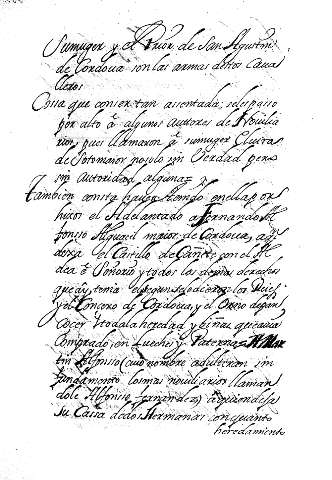 Su muger y el Prior de San Agustin
de Cordova son las armas destos Cava
lleros
Cosa que con ser tan assentada, se les paso
por alto a algunos autores de Nobilia
rios, pues llamaron a su muger Elvira
de Sotomaior no solo sin Verdad pero
sin autoridad alguna
Tambien consta haver tenido en ella por
hijos el Adelantado a Fernando Al
fonsso Alguacil maior de Cordova, a q
dexa el Castillo de Cañete con el Al
dea o Señorio y todos los demas
que alli tenia
y el de Cordova, y el Orno de pan
Cocer toda la heredad y viñas que avia
Comprado en Luches y Paterna A Mar
tin Alfonsso (cuio nombre adulteron sin
fundamento los mas noviliarios llaman
dole Alfonsso Fernandez) a quien dexa
su Cassa de dos Hermanas con quanto
heredamiento